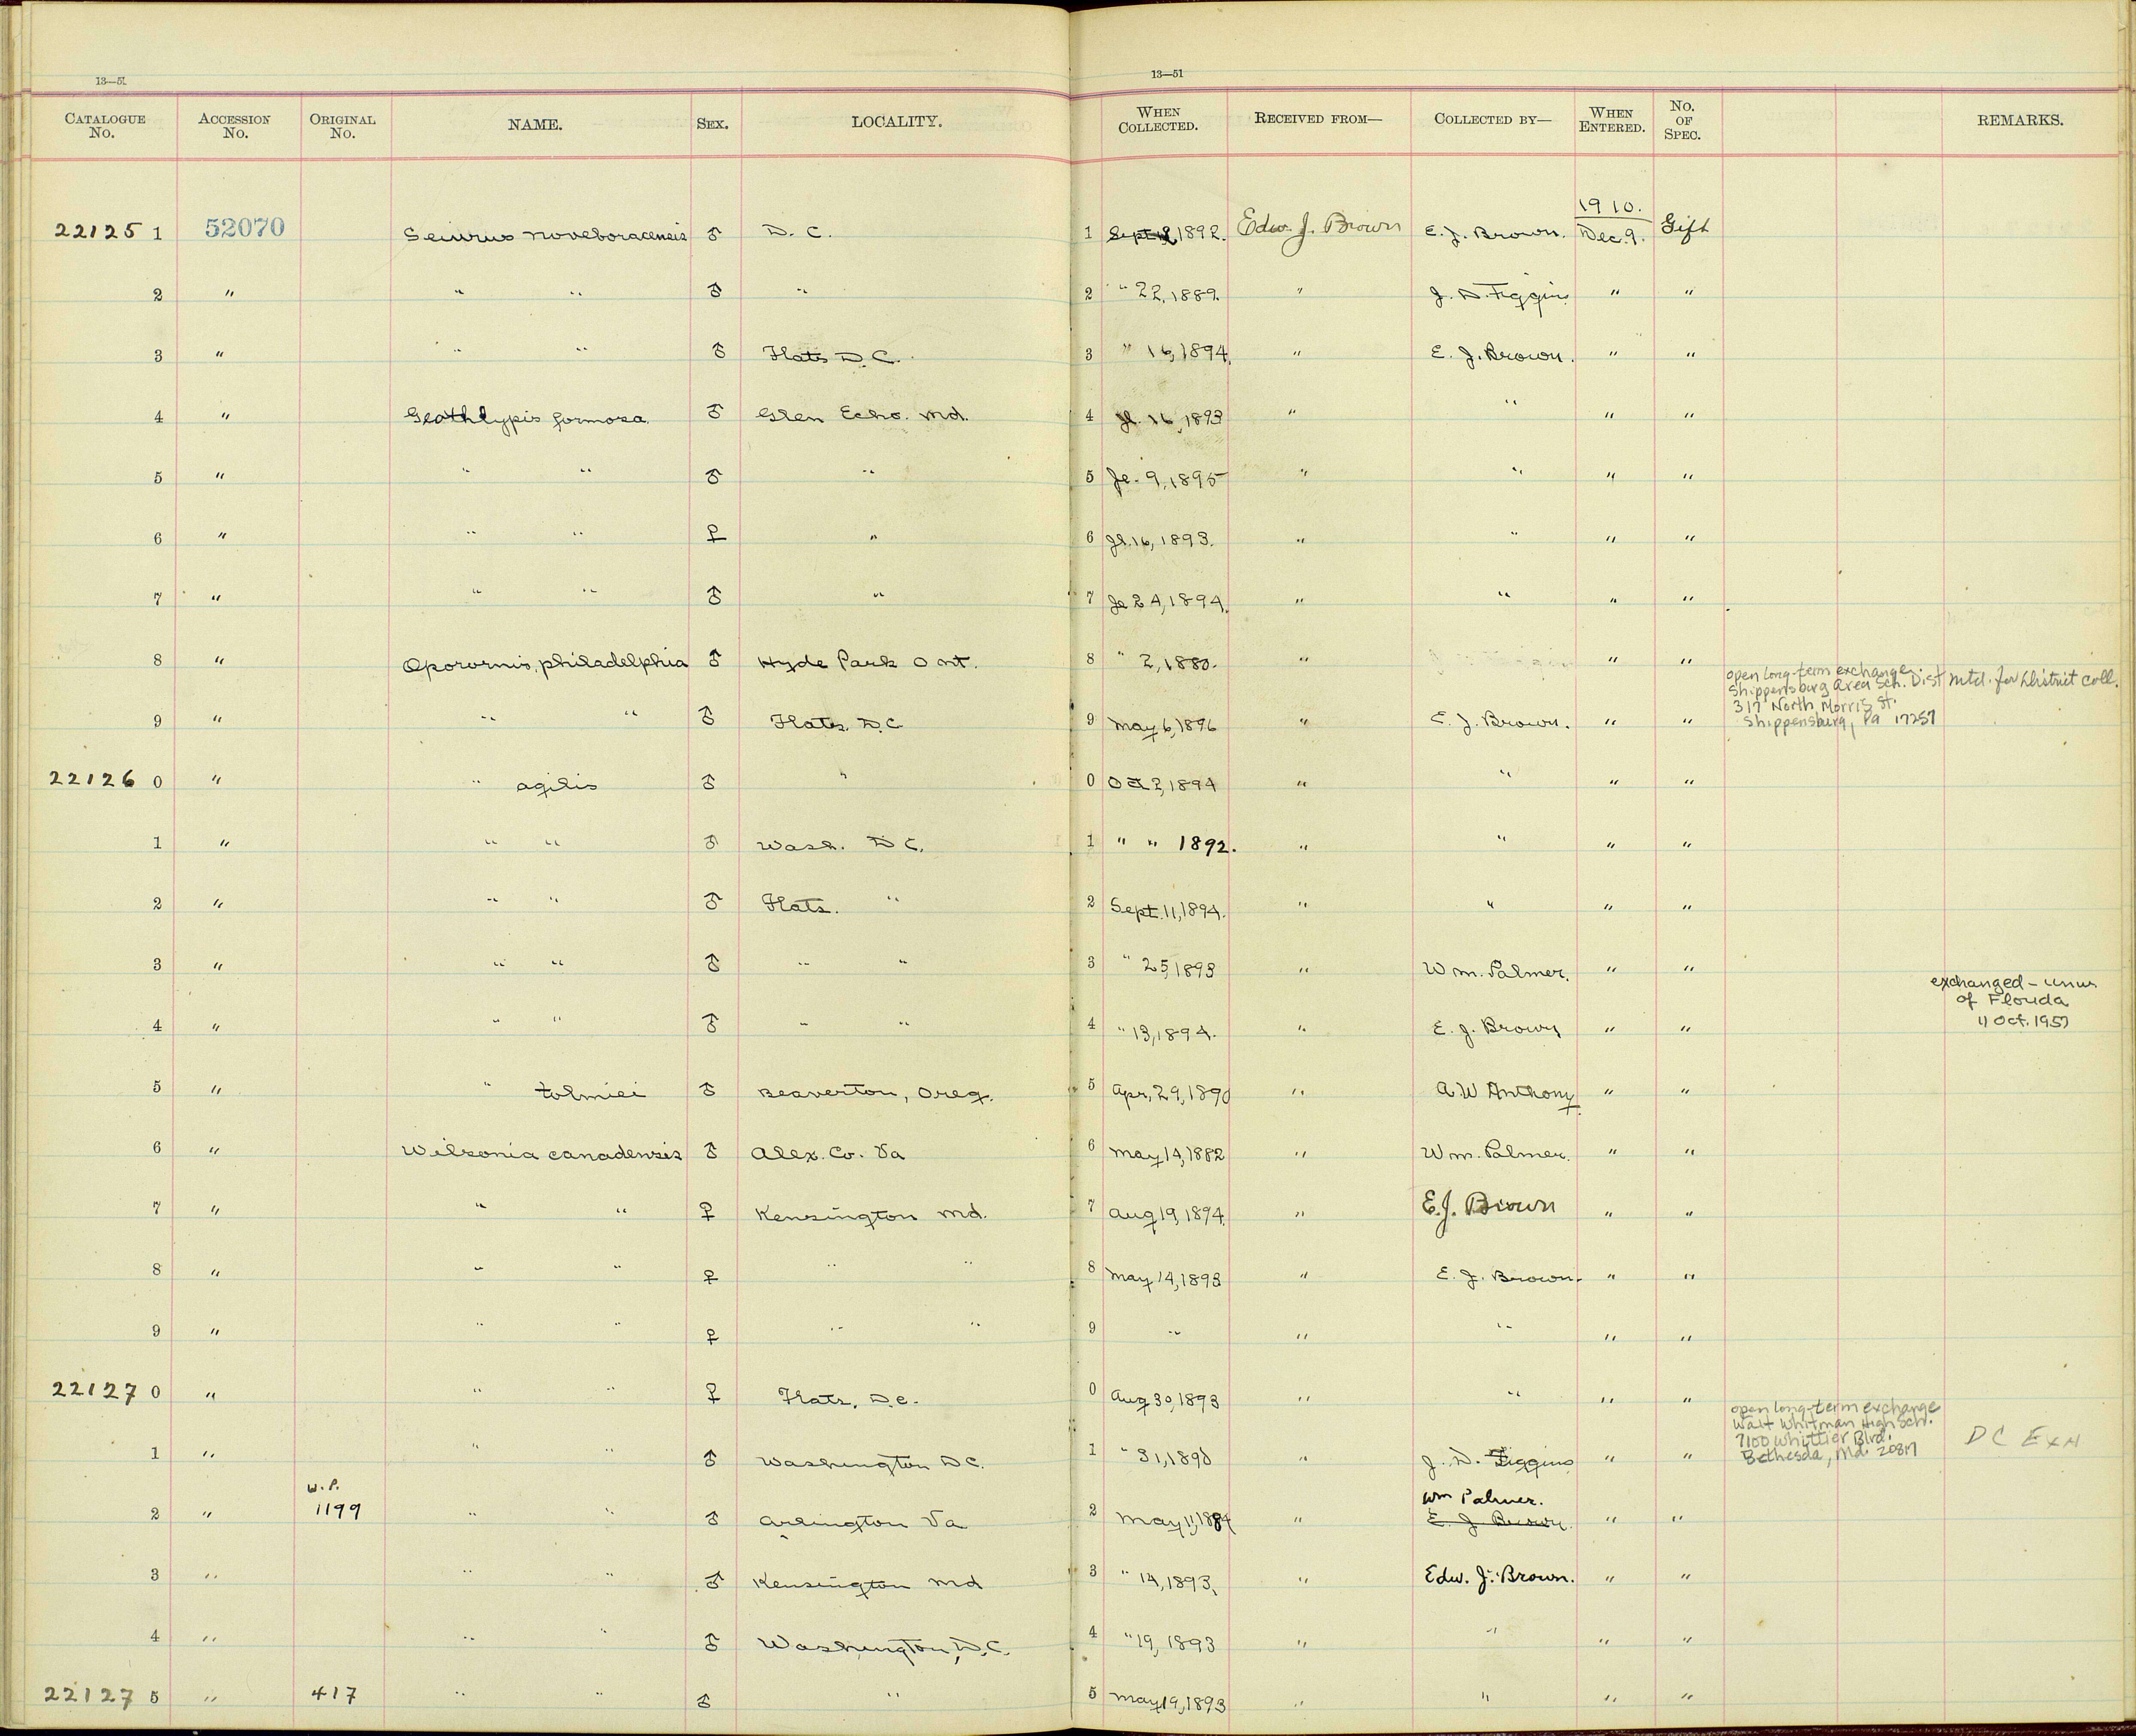 13—51
13—51
CATALOGUE No. ACCESSION No. ORIGINAL No. NAME. SEX. LOCALITY. WHEN COLLECTED. RECEIVED FROM— COLLECTED BY— WHEN ENTERED. No. OF SPEC. REMARKS.
1910.
22125 1 52070 Seiurus noveboracensis ♂ D. C. 1 Sept 1892. Edw. J. Brown E. J. Brown. Dec. 9. Gift
2 " " " ♂ " 2 " 22, 1889. " J. D. Figgins " "
3 " " " ♂ Flats D. C. 3 " 16, 1894. " E. J. Brown. " "
4 " Geothlypis formosa. ♂ Glen Echo. Md. 4 Jl. 16, 1893 " " " "
5 " " " ♂ " 5 Je. 9, 1895 " " " "
6 " " " ♀ " 6 Jl. 16, 1893. " " " "
7 " " " ♂ " 7 Je 24, 1894. " " " "
8 " Oporornis philadelphia ♂ Hyde Park Ont. 8 " 2, 1880. " " "
open long-term exchange.
Shippensburg Area Sch. Dist mtd. for District coll.
317 North Morris St.
Shippensburg, Pa 17257
9 " " " ♂ Flats, D.C 9 May 6, 1896 " E. J. Brown. " "
22126 0 " " agilis ♂ " 0 Oct 2, 1894 " " " "
1 " " " ♂ Wash. D C. 1 " " 1892. " " " "
2 " " " ♂ Flats. " 2 Sept. 11, 1894. " " " "
3 " " " ♂ " " 3 " 25, 1893 " Wm. Palmer. " "
exchanged - Univ
of Florida
11 Oct. 1957
4 " " " ♂ " " 4 " 13, 1894. " E. J. Brown " "
5 " " tolmiei ♂ Beaverton, Oreg. 5 Apr. 29, 1890 " A. W Anthony " "
6 " Wilsonia canadensis ♂ Alex. Co. Va 6 May 14, 1882 " Wm. Palmer. " "
7 " " " ♀ Kensington Md. 7 Aug 19, 1894. " E. J. Brown " "
8 " " " ♀ " " 8 May 14, 1893 " E. J. Brown. " "
9 " " " ♀ " " 9 " " " " "
22127 0 " " " ♀ Flats, D.C. 0 Aug 30, 1893 " " " "
open long-term exchange
Walt Whitman High Sch.
7100 Whittier Blvd.
Bethesda, Md. 20817
DC Exh
1 " " " ♂ Washington D C. 1 " 31, 1890 " J. D. Figgins " "
W. P. Wm Palmer.
2 " 1199 " " ♂ Arlington Va 2 May 11, 1884 " E. J. Brown " "
3 " " " ♂ Kensington Md 3 " 14, 1893, " Edw. J. Brown. " "
4 " " " ♂ Washington, D. C. 4 " 19, 1893 " " " "
22127 5 " 417 " " ♂ " 5 May 19, 1893 " " " "